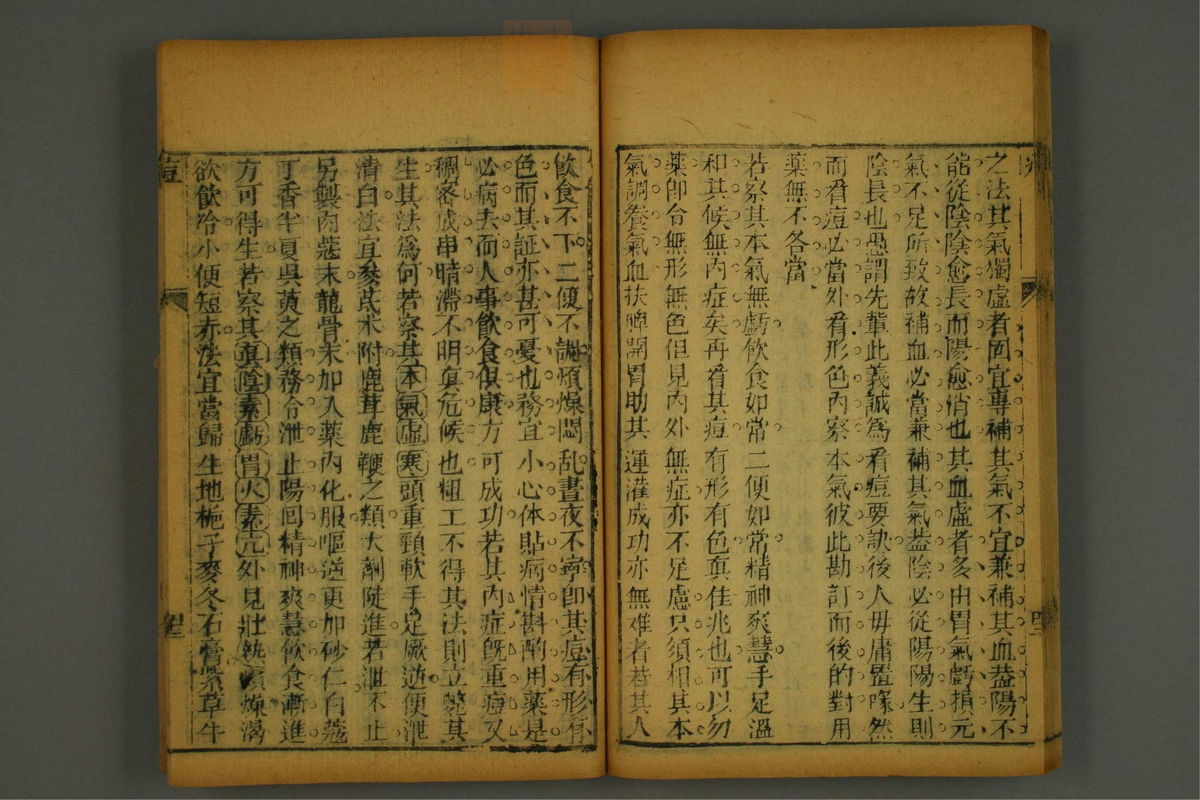 之法其氣獨虛者固宜專補其氣不宜兼補其血蓋陽不
能從陰陰愈長而陽愈消也其血虛者多由胃氣虧損元
氣不足所致故補血必當兼補其氣蓋陰必從陽陽生則
陰長也愚謂先輩此義誠為看痘要訣後人毋庸置喙然
而看痘必當外看形色內察本氣彼此勘訂而後的對用
藥無不各當
若察其本氣無虧飲食如常二便如常精神爽慧手足溫
和其候無內症矣再看其痘有形有色真佳兆也可以勿
藥即令無形無色但見內外無症亦不足慮只須相其本
氣調養氣血扶脾開胃助其運灌成功亦無難者若其人
飲食不下二便不調煩燥悶乱晝夜不寧即其痘有形有
色而其証亦甚可憂也務宜小心体貼病情斟酌用藥是
必病去而人事飲食俱康方可成功若其內症既重痘又
稠密成串暗滯不明真危候也粗工不得其法則立斃其
生其法為何若察其本氣虛寒頭重頸軟手足厥逆便泄
清白法宜參芪朮附鹿茸鹿鞭之類大劑陡進若泄不止
另製肉蔻末龍骨末加入藥內化服嘔逆更加砂仁白蔻
丁香半夏吳萸之類務令泄止陽回精神爽慧飲食漸進
方可得生若察其真陰素虧胃火素亢外見壯熱煩燥渴
欲飲冷小便短赤法宜當歸生地梔子麥冬石膏紫草牛